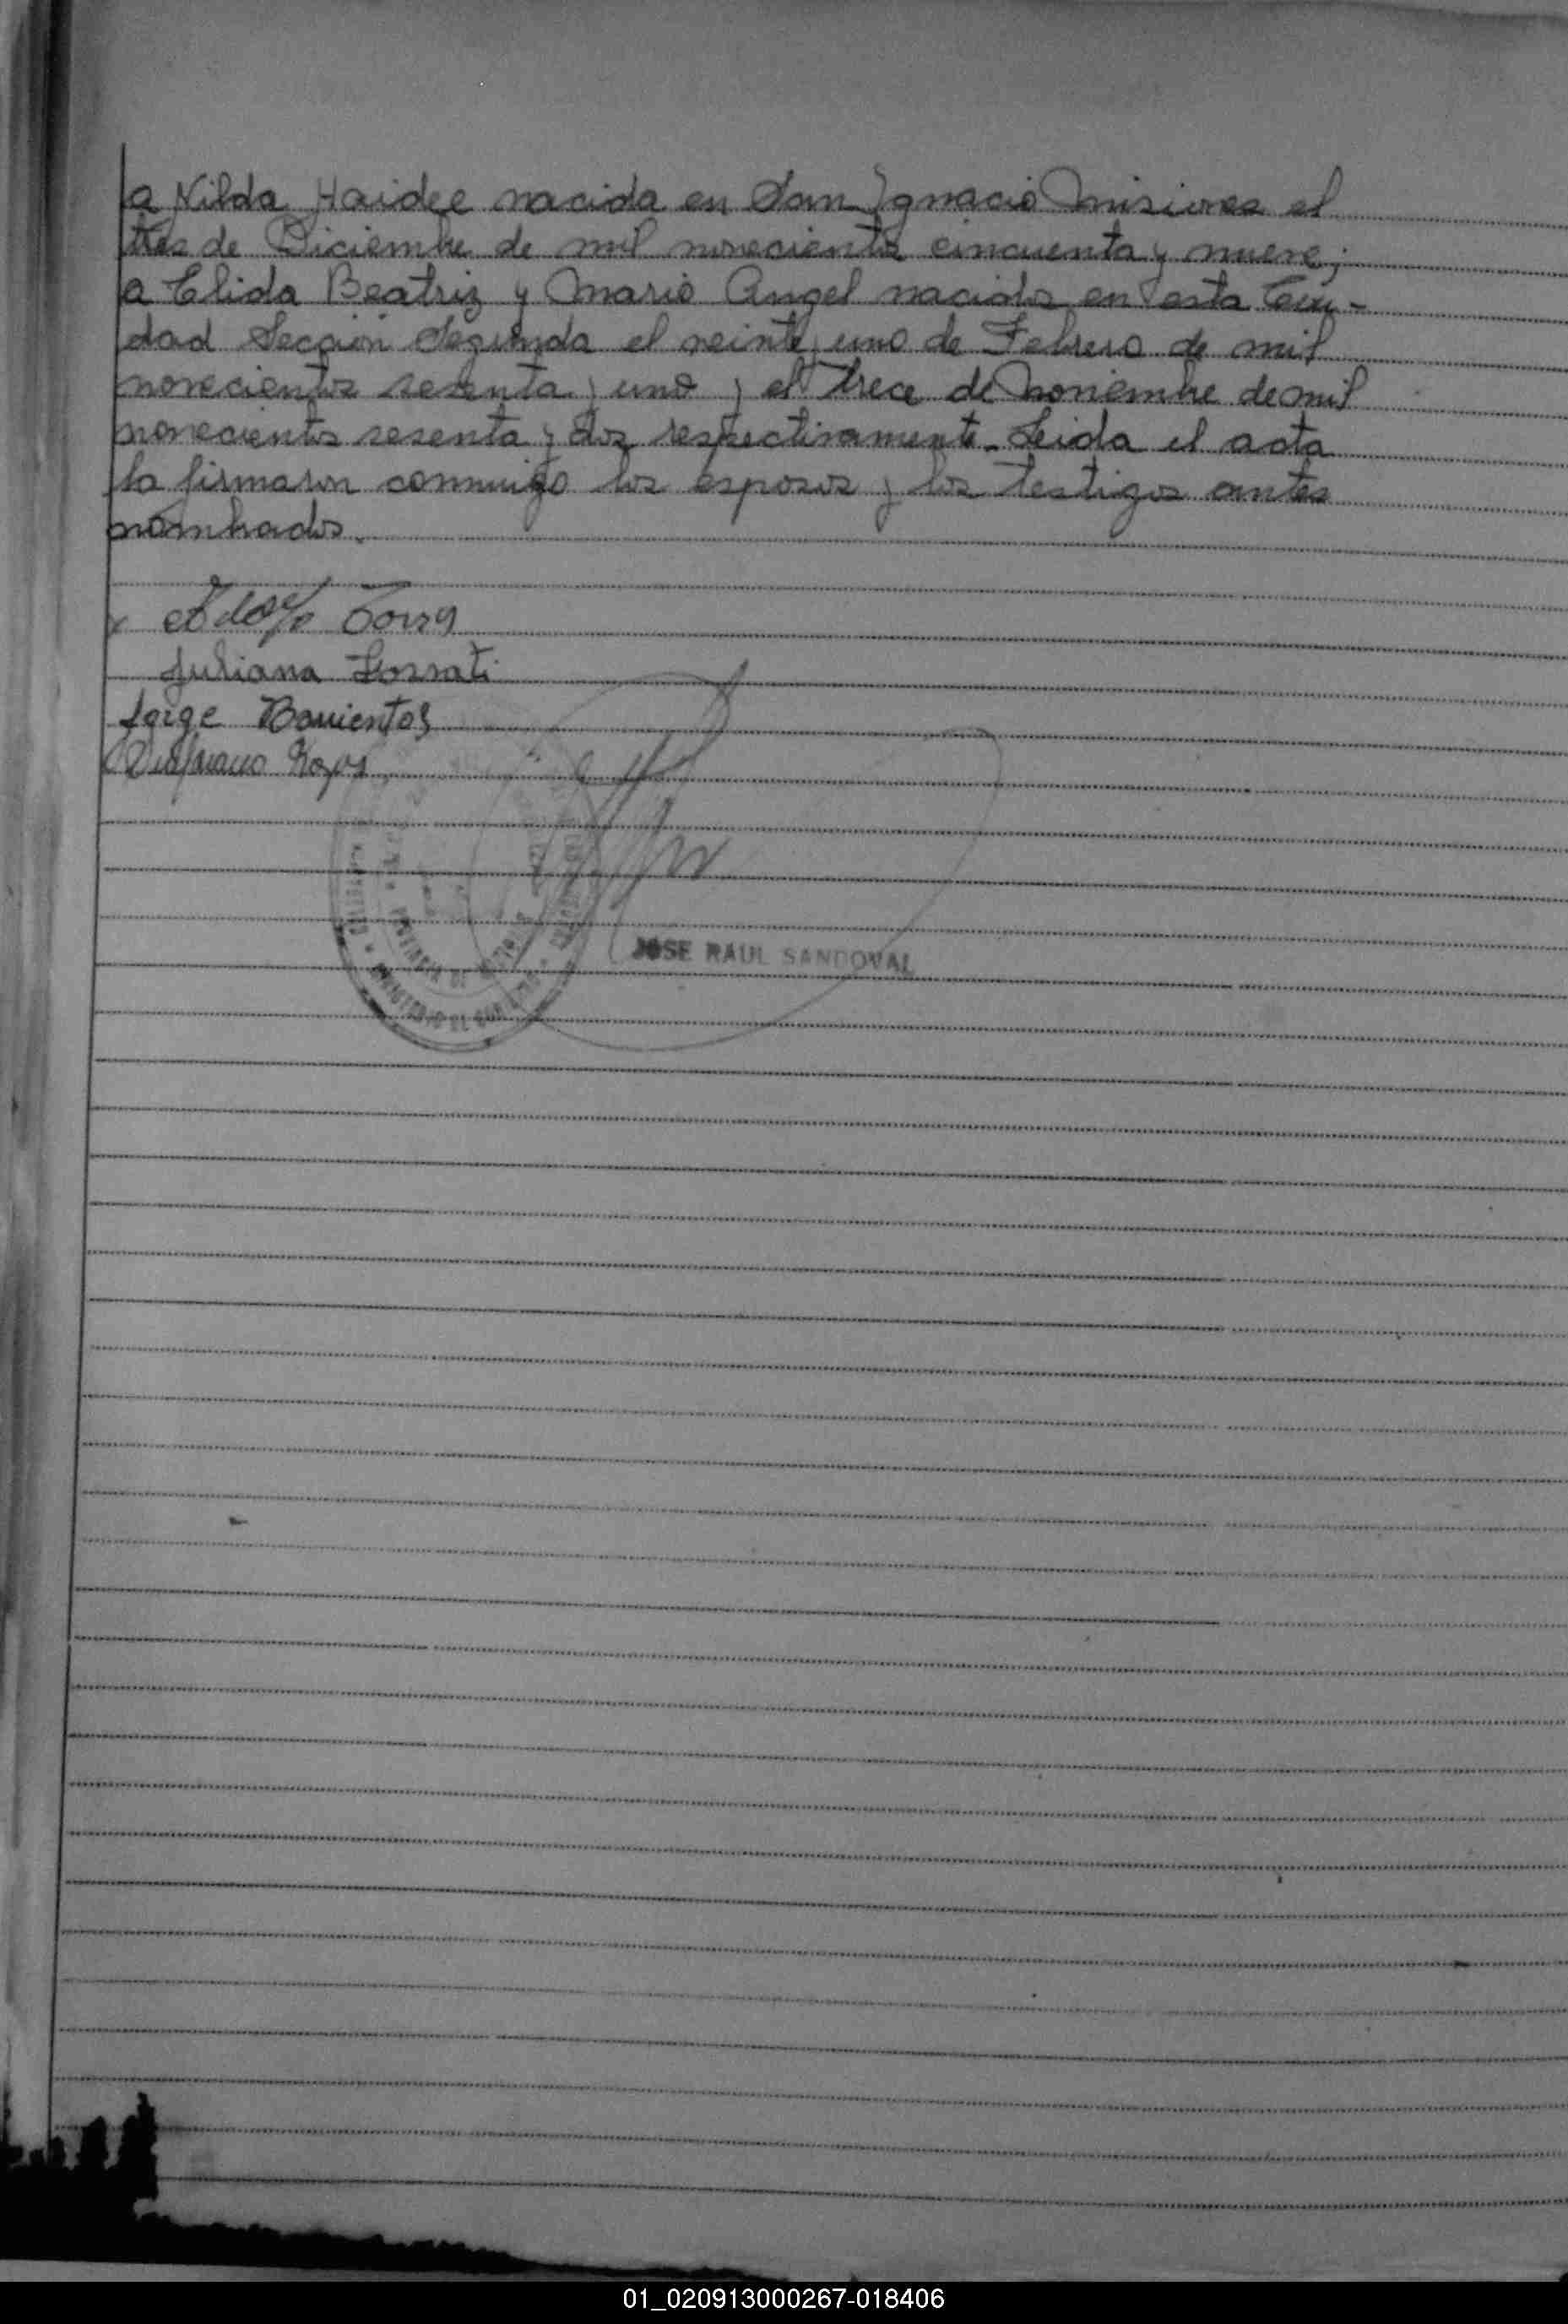 a Nilda Haidee nacida en San Ignacio Misiones el
tres de Diciembre de mil novecientos cincuenta y nueve;
a Elida Beatriz y Mario Angel nacidos en esta Ciu-
dad Sección Segunda el veinte y uno de Febrero de mil
novecientos sesenta y uno y el trece de Noviembre de mil
novecientos sesenta y dos respectivamente. Leida el acta
la firmaron conmigo los esposos y los testigos antes
nombrados.
Adolfo Torres
Juliana
Jorge Barrientos
JOSE RAUL SANDOVAL
PROVINCIA DE
01_020913000267-018406